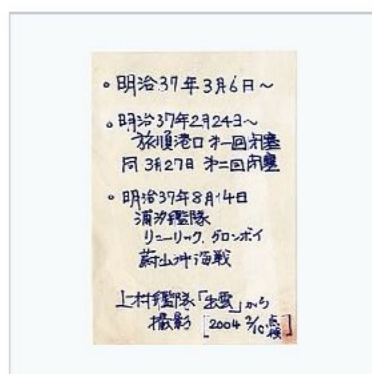 。明治37年3月6日~
。明治37年2月24日~
旅順港口 才一回閉塞
同 3月27日 才二回閉塞
。明治37年8月14日
浦汐艦隊
リューリック、グロンボイ
蔚山沖海戦
上村艦隊「出雲」から
撮影 [2004 2/10 点検]